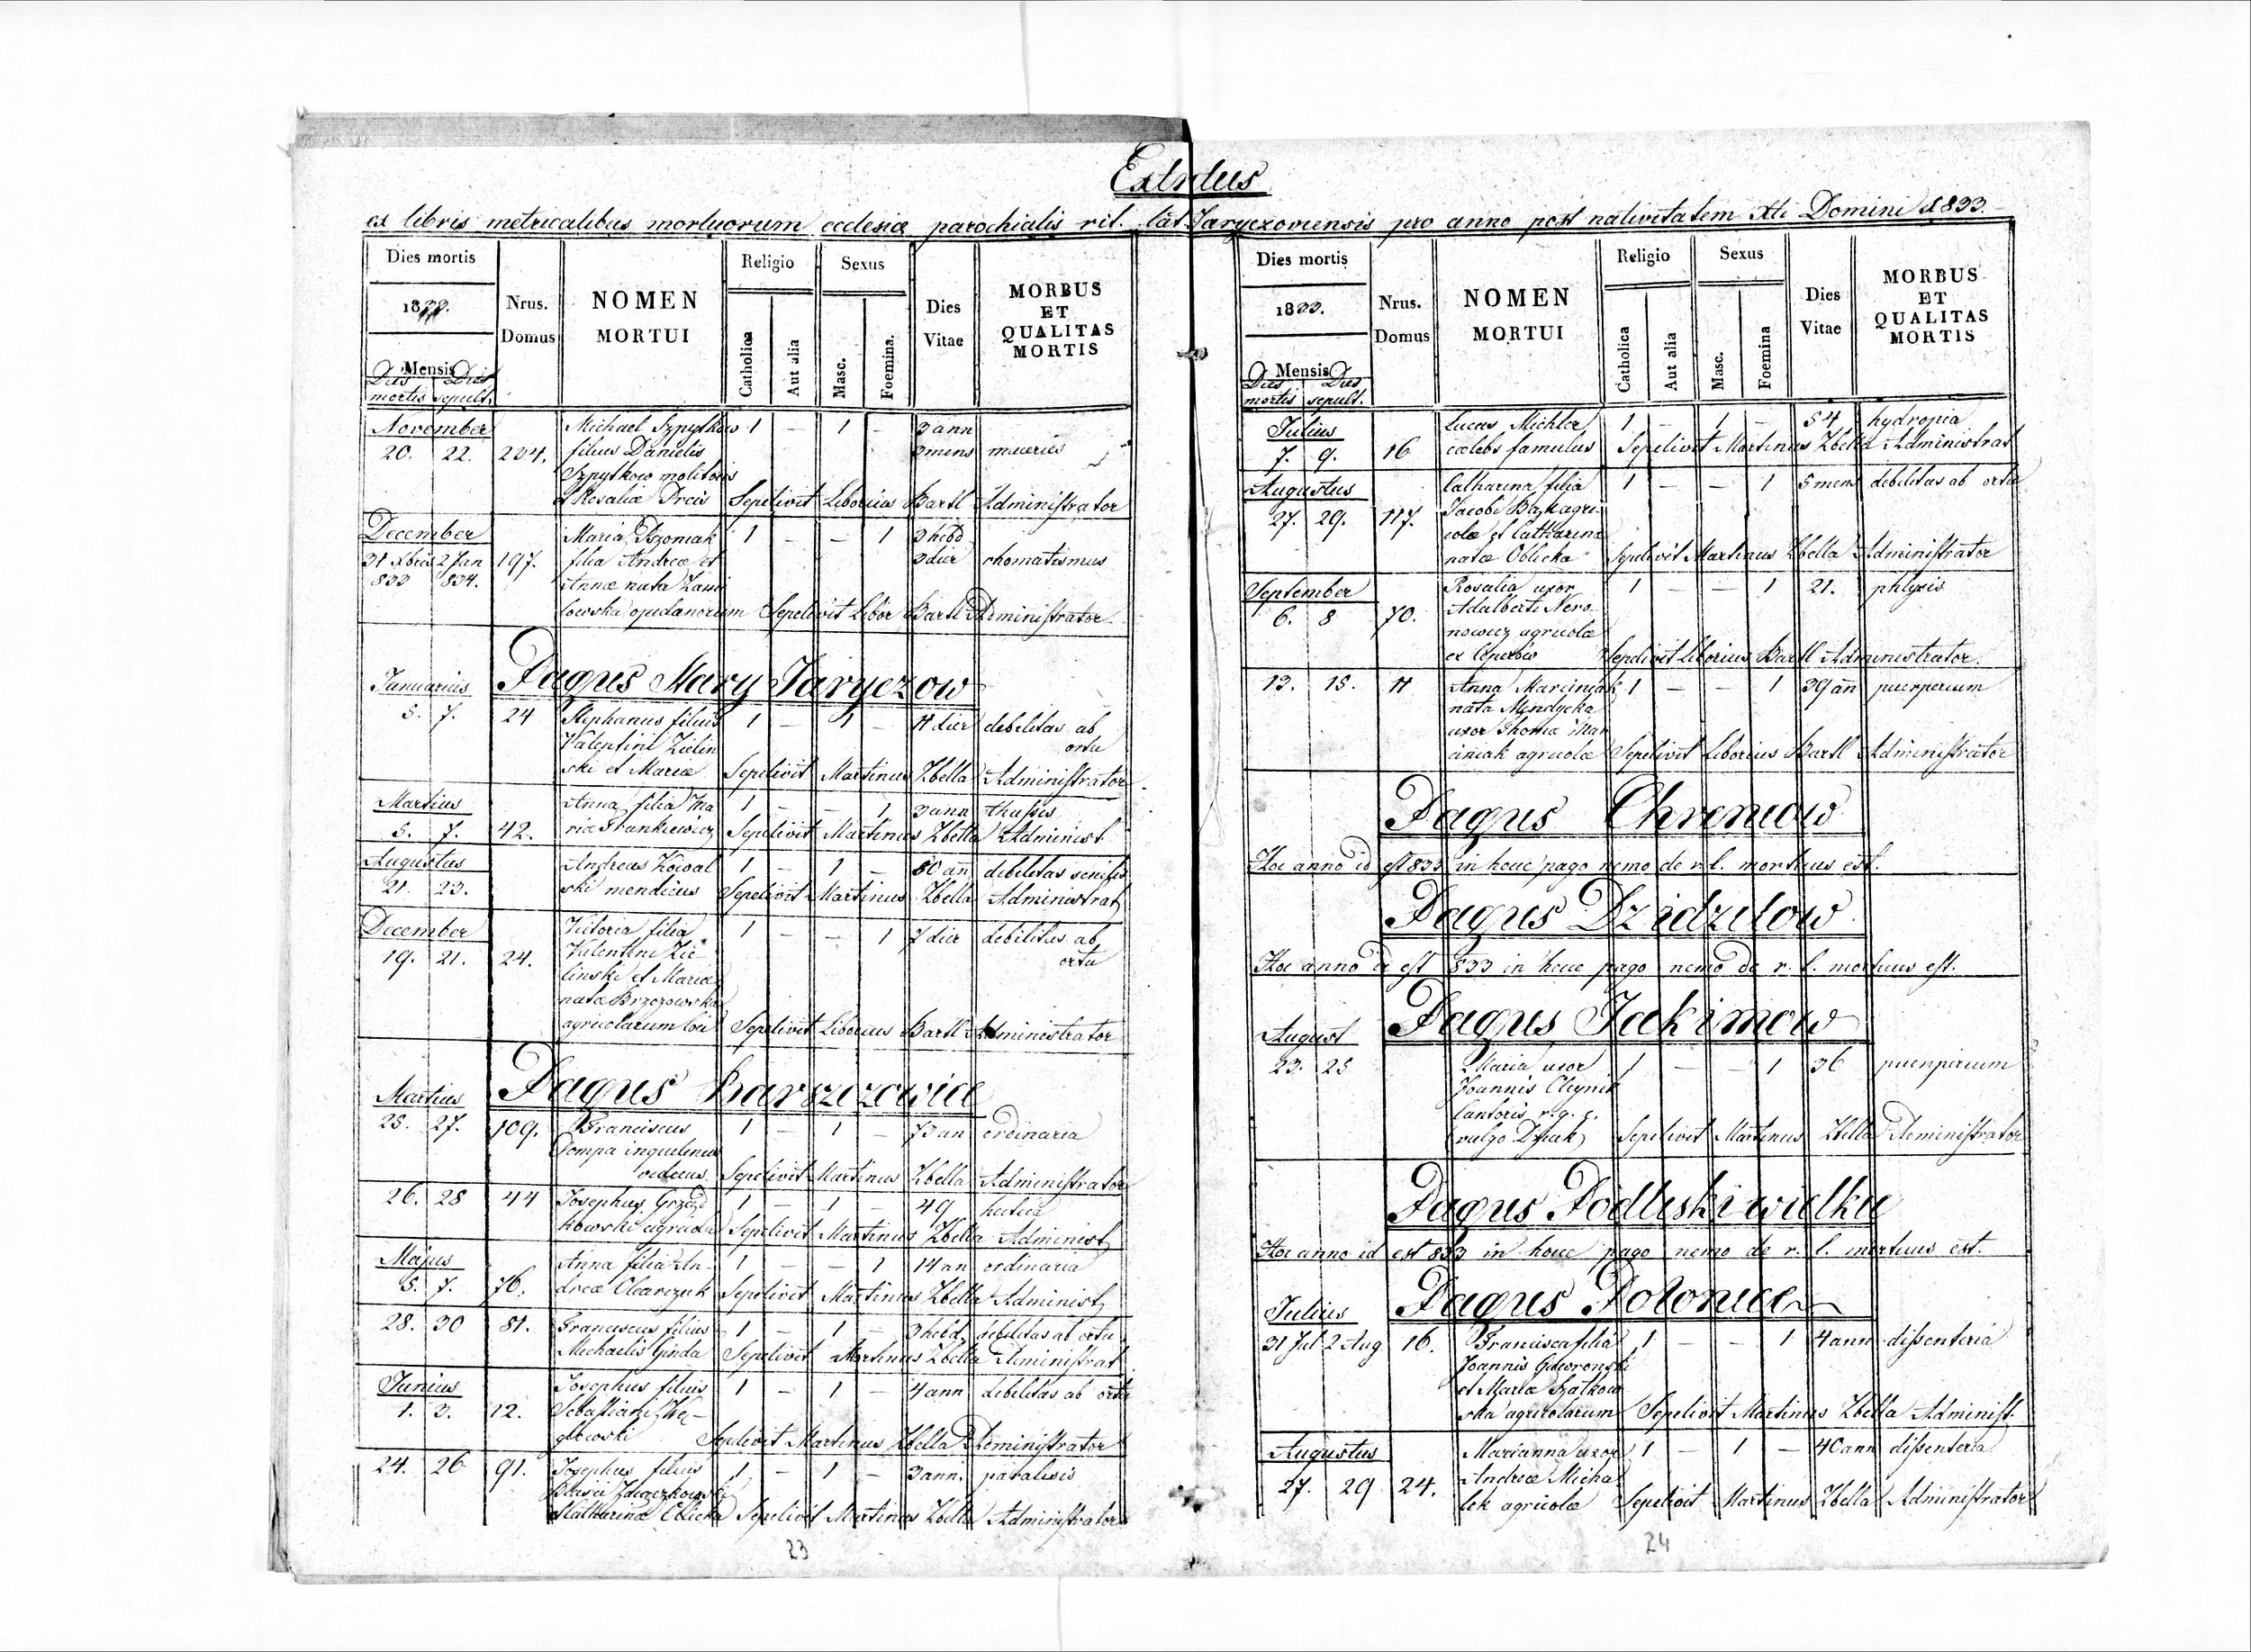 Extractus
ex libris metricalibus mortuorum ecclesiæ parochialis rit. lat. Jaryczoviensis pro anno post nativitatem Xti Domini 1833.
Dies mortis
1833.
Mensis
Dies mortis
Dies sepult.
Nrus. Domus
NOMEN MORTUI
Religio
Catholica
Aut alia
Sexus
Masc.
Foemina.
Dies Vitae
MORBUS ET QUALITAS MORTIS
November
Michael Szpytkow 1 – 1 – 3 ann
20. 22. 234. filius Danielis 3 mens macries
Szpytkow molitoris
et Rosaliæ Preis Sepelivit Liborius Bartl Administrator
December
Maria Pszoniak 1 – – 1 3 hebd
31 Xbris 2 Jan 197. filia Andreæ et 3 dier rhomatismus
833 834. Annæ nata
opidanorum Sepelivit Libor Bartl Administrator.
Pagus Stary Jaryczow
Januarius
5. 7. 24 Stephanus filius 1 – 1 – 11 dier debilitas ab
Valentini Zielin ortu
ski et Mariæ Sepelivit Martinus Zbella Administrator
Martius
Anna filia Ma 1 – – 1 3 ann thussis
5. 7. 42. riæ Frankiewicz Sepelivit Martinus Zbella Administ
Augustus
Andreas Kowal 1 – 1 – 80 an debilitas senilis
21. 23. ski mendicus Sepelivit Martinus Zbella Administrat
December
Victoria filia 1 – – 1 7 dier debilitas ab
19. 21. 24. Valentini Zie ortu
linski et Mariæ
nata Brzozowska
agricolarum loci Sepelivit Liborius Bartl Administrator
Pagus Barszczowice
Martius
25. 27. 109. Franciscus 1 – 1 – 73 an ordinaria
Pompa inquilinus
viduus Sepelivit Martinus Zbella Administrator
26. 28 44 Josephus 1 – 1 – 49 hectica
kowski agricola Sepelivit Martinus Zbella Administ
Majus
Anna filia An- 1 – – 1 14 an ordinaria
5. 7. 76. dreæ Olearczuk Sepelivit Martinus Zbella Administ
28. 30 81. Franciscus filius 1 – 1 – 3 hebd debilitas ab ortu
Michaelis Ginda Sepelivit Martinus Zbella Administrat
Junius
Josephus filius 1 – 1 – 4 ann debilitas ab ortu
1. 3. 12. Sebastiani Wę-
glowski Seplivit Martinus Zbella Administrator
24. 26 91. Josephus filius 1 – 1 – 3 ann. paralisis
Blasii
et Catharinæ Oblicka Sepelivit Martinus Zbella Administrator
23
Dies mortis
1833.
Mensis
Dies mortis
Dies sepult.
Nrus. Domus
NOMEN MORTUI
Religio
Catholica
Aut alia
Sexus
Masc.
Foemina
Dies Vitae
MORBUS ET QUALITAS MORTIS
Julius
Lucas Michler 1 – 1 – 54 hydropia
7. 9. 16 cælebs famulus Sepelivit Martinus Zbella Administrat
Augustus
Catharina filia 1 – – 1 5 mens debilitas ab ortu
27. 29. 117. Jacobi Bąk agri-
colæ et Catharinæ
natæ Oblicka Sepelivit Martinus Zbella Administrator
September
Rosalia uxor 1 – – 1 21. phtysis
6. 8 70. Adalberti Nero
nowicz agricolæ
ex Sepelivit Liborius Bartl Administrator.
13. 15. 11 Anna Marciniak 1 – – 1 39 an puerperium
nata Mendycka
uxor Thomæ Mar
ciniak agricolæ Sepelivit Liborius Bartl Administrator
Pagus Chreniow
Hoc anno id est 833 in hocce pago nemo de r. l. mortuus est.
Pagus Dzidzilow
Hoc anno id est 833 in hocce pago nemo de r. l. mortuus est.
Pagus Jakimow
August
23. 25 Maria uxor 1 – – 1 36 puerperium
Joannis Oleynik
Cantoris r. g. c.
(vulgo Dyak) Sepelivit Martinus Zbella Administrator
Pagus Podliski wielkie
Hoc anno id est 833 in hocce pago nemo de r. l. mortuus est.
Pagus Polonice
Julius
31 Jul 2 Aug 16. Francisca filia 1 – – 1 4 ann dissenteria
Joannis Gaworonski
et Maria Szatkow
ska agricolarum Sepelivit Martinus Zbella Administ.
Augustus
Marianna uxor 1 – 1 – 40 ann dissenteria
27. 29 24. Andreæ Micha
lek agricolæ Sepelivit Martinus Zbella Administrator
24